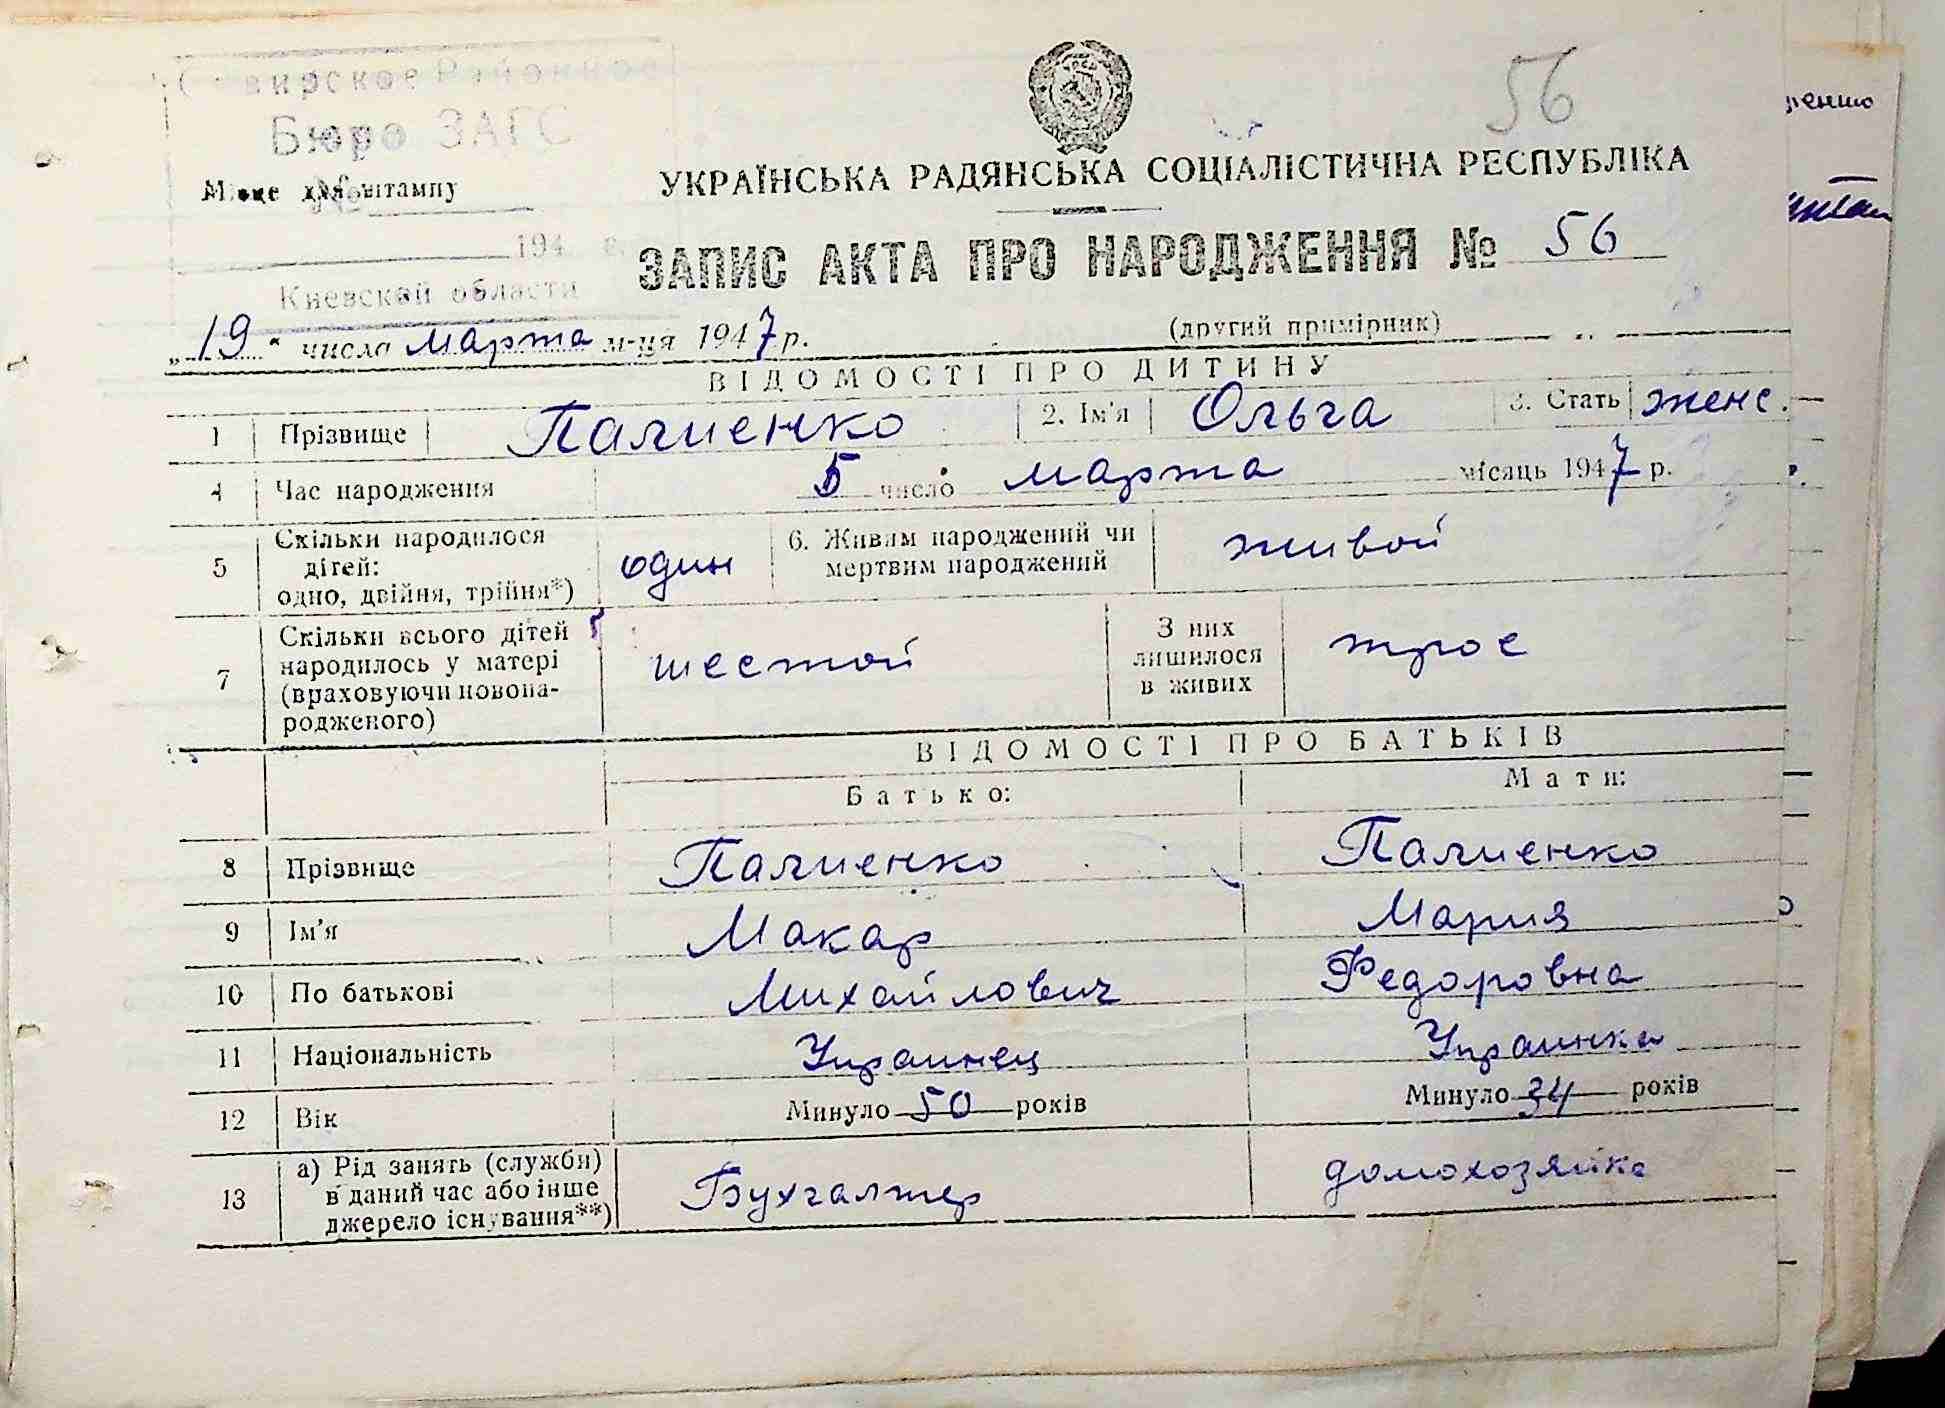 вирское Районное
Бюро ЗАГС
Місце для штампу
194 г.
Киевской области
56
УКРАЇНСЬКА РАДЯНСЬКА СОЦІАЛІСТИЧНА РЕСПУБЛІКА
ЗАПИС АКТА ПРО НАРОДЖЕННЯ № 56
„19" числа марта м-ця 1947 р.
(другий примірник)
ВІДОМОСТІ ПРО ДИТИНУ
1 Прізвище Палиенко 2. Ім'я Ольга 3. Стать женс.
4 Час народження 5 число марта місяць 1947 р.
5 Скільки народилося дітей: одно, двійня, трійня*) один 6. Живим народжений чи мертвим народжений живой
7 Скільки всього дітей народилось у матері (враховуючи новонародженого) шестой З них лишилося в живих трое
ВІДОМОСТІ ПРО БАТЬКІВ
Батько: Мати:
8 Прізвище Палиенко Палиенко
9 Ім'я Макар Мария
10 По батькові Михайлович Федоровна
11 Національність Украинец Украинка
12 Вік Минуло 50 років Минуло 34 років
13 а) Рід занять (служби) в даний час або інше джерело існування**) Бухгалтер домохозяйка